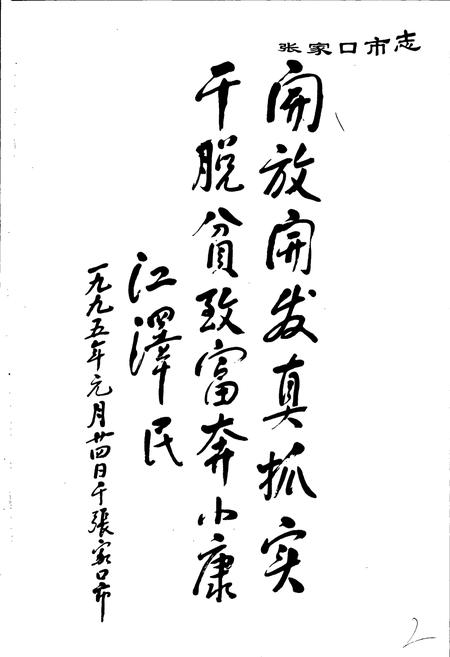 张家口市志
开放开发真抓实
干脱贫致富奔小康
江澤民
一九九五年元月廿四日于張家口市
2